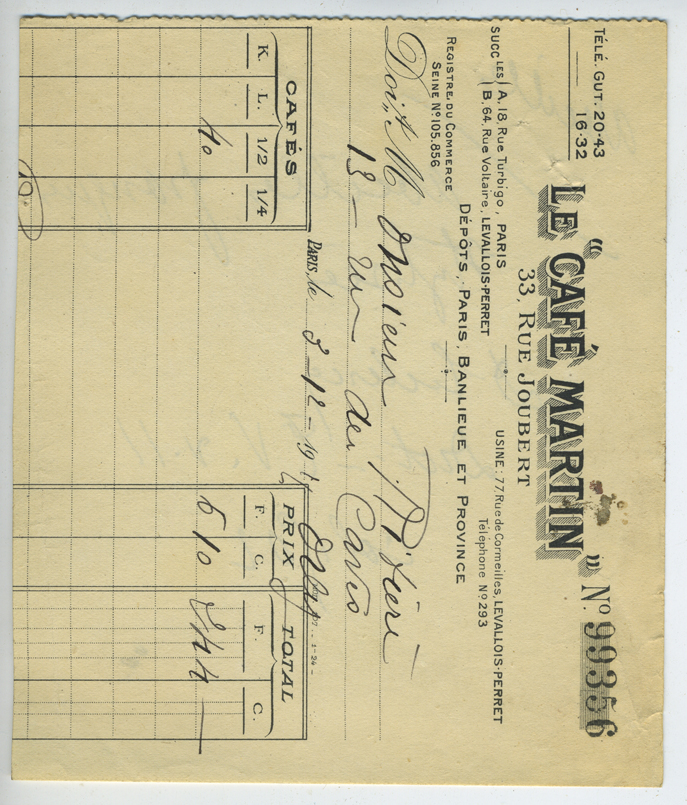 TÉLÉ. GUT. 20-43
16-32
"LE CAFÉ MARTIN" Nº 99356
33, RUE JOUBERT
SUCCLES A. 18, Rue Turbigo, PARIS
B. 64, Rue Voltaire, LEVALLOIS-PERRET
USINE: 77, Rue de Cormeilles, LEVALLOIS-PERRET
Téléphone Nº 293
DÉPÔTS, PARIS, BANLIEUE ET PROVINCE
REGISTRE DU COMMERCE
SEINE Nº 105.856
Doit M onsieur
13 - rue des
PARIS, le 3-12-19
CAFÉS PRIX TOTAL
K. L. 1/2 1/4 F. C. F. C.
40 6 10 244 —